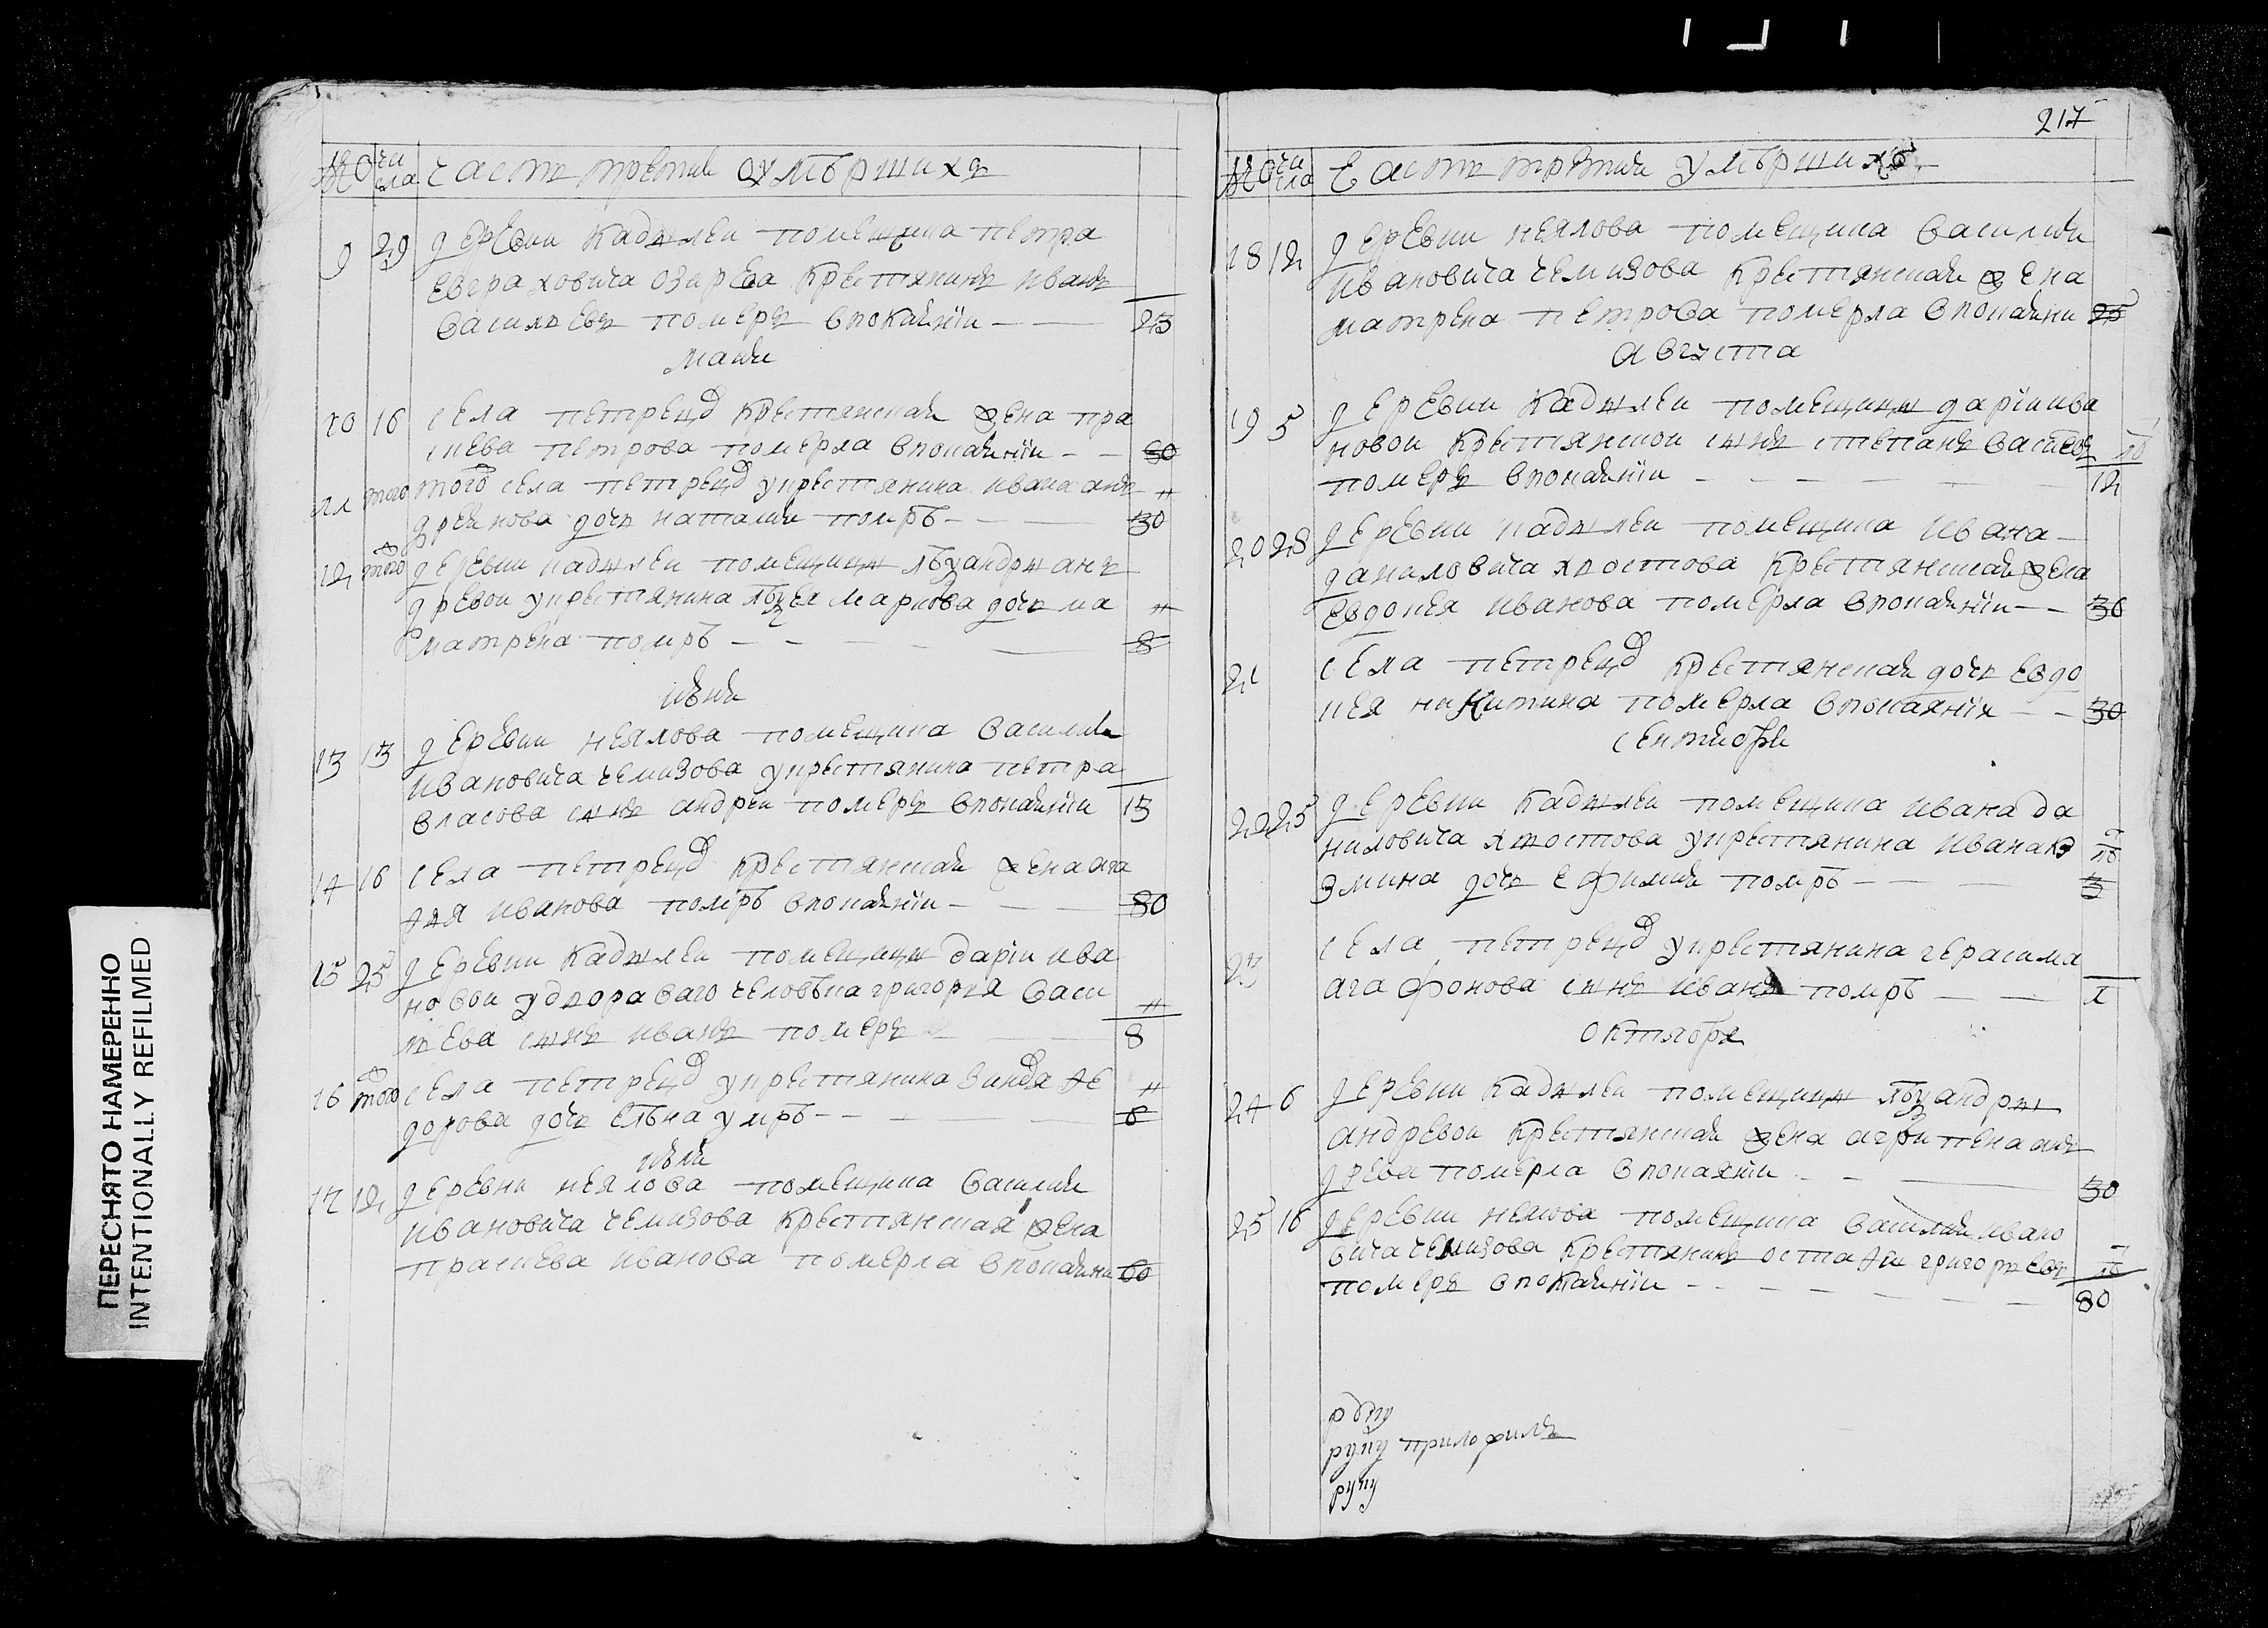 217
№ чи сла часть третия умѣршихъ
9 29 деревни Кадылеи помещика петра
евграховича озирева крестянинъ иванъ
васильевъ померъ впокаянiи — — 23
маия
10 16 села петрецо крестянская жена пра
сковя петрова померла впокаянiи - — 50
11 того того села петрецо укрестянина ивана анъ
дреянова дочь наталия помрѣ - — 30
12 того деревни кадылеи помещицы андры анъ
древои укрестянина маркова дочь ма
матрена помрѣ — - - — 8
июня
13 13 деревни неялова помещика василия
ивановича чемизова укрестянина петра
власова сынъ андреи померъ впокаянiи 13
14 16 села петрецо крестянская жена ага
фья иванова помрѣ впокаянiи — — 80
15 25 деревни кадылеи помещицы дарiи ива
новои удвороваго человѣка григоря васи
лева сынъ иванъ померъ — — 8
16 того села петрецо укрестянина фе
дорова дочь елѣна умрѣ - — — 6
июля
17 12 деревни неялова помещика василия
ивановича чемизова крестянская жена
праскева иванова померла впокаянии 60
№ чи сла часть третия умѣршихъ
18 12 деревни неялова помещика василия
ивановича чемизова крестянская жена
матрена петрова померла впокаянии 25
августа
19 5 деревни кадылеи помещицы дарiи ива
новои крестянскои сынъ степанъ
померъ впокаянiи - — — — 12
20 28 деревни кадылеи помещика ивана
даниловича хвостова крестянская жена
евдокея иванова померла впокаянiи — - 30
21 села петрецо крестянская дочь евдо
кея никитина померла впокаянiи — - 30
сентября
22 25 деревни кадылеи помещика ивана да
ниловича хвостова укрестянина ивана ко
змина дочь ефимия помрѣ - — — 3
23 села петрецо укрестянина герасима
агафонова сынъ иванъ помрѣ — — 1
октября
24 6 деревни кадылеи помещицы андры
андревои крестянская жена агрипена анъ
древа померла впокаянiи - - — 30
25 16 деревни неялова помещика василия ивано
вича чемизова крестянинъ остафи григорьевъ
померъ впокаянiи - - - — — — 80
руку приложилъ
руку
ПЕРЕСНЯТО НАМЕРЕННО
INTENTIONALLY REFILMED